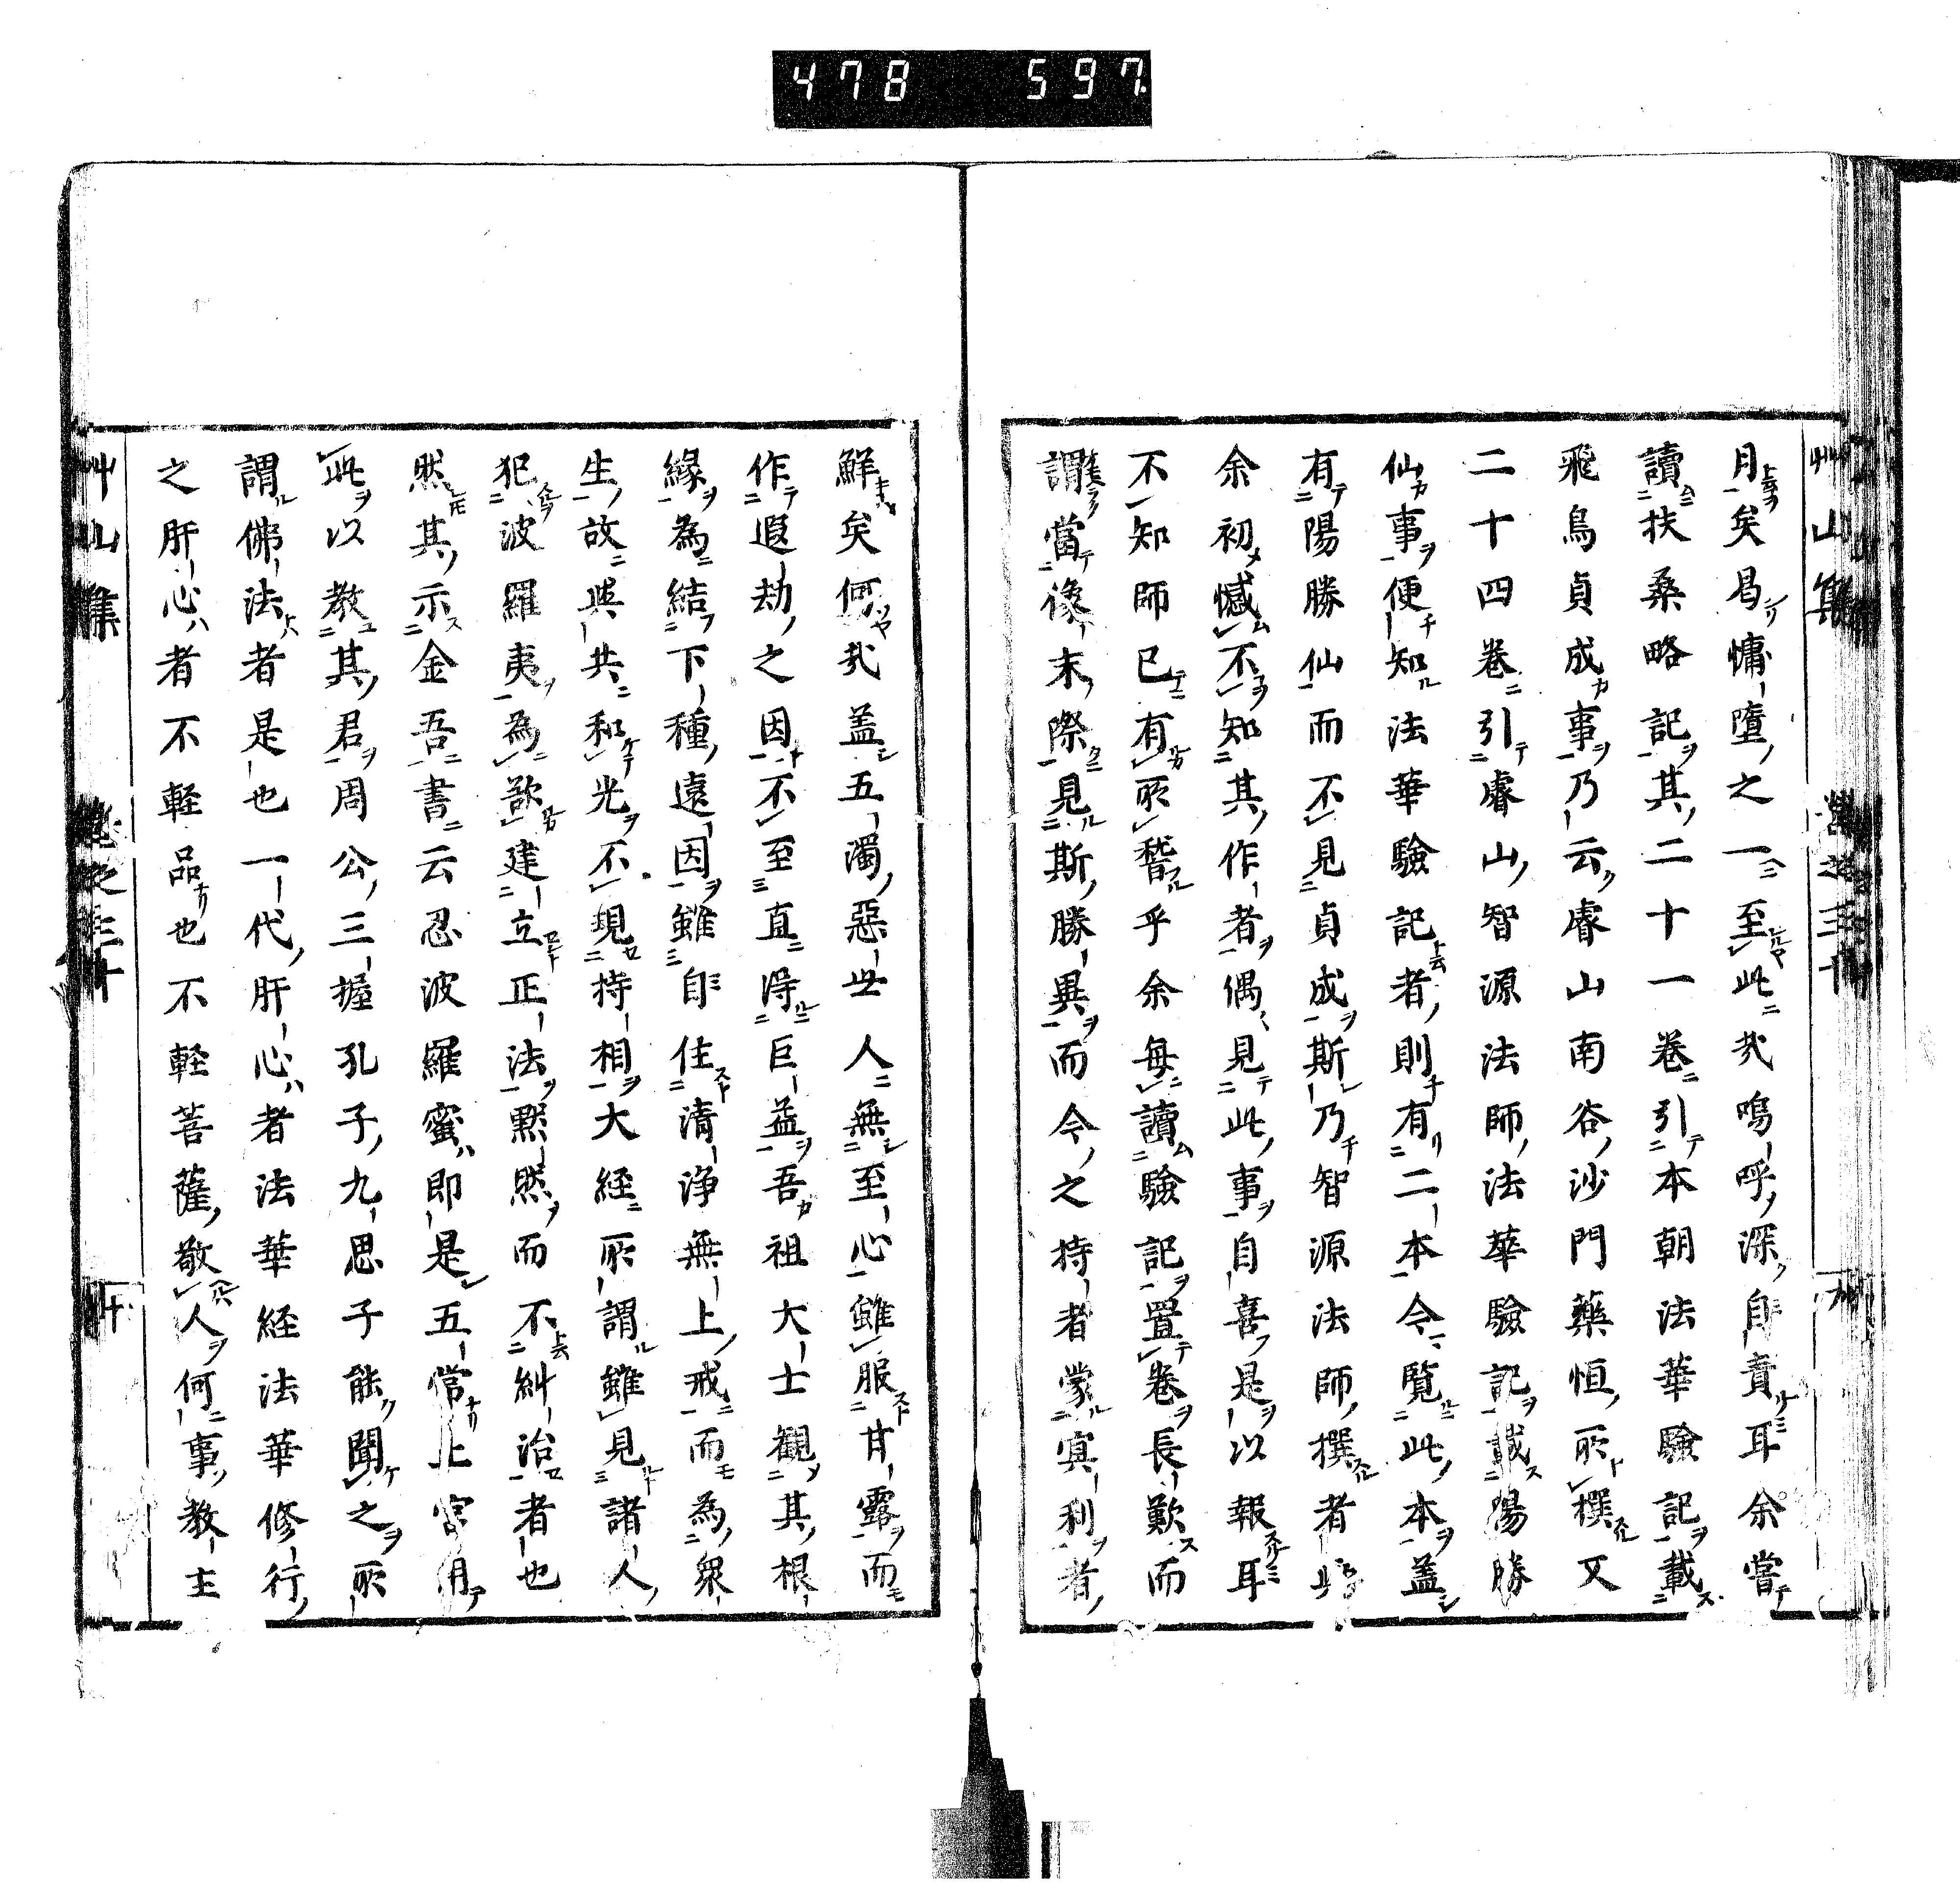 478 597
艸山集
卷之三十
九
月矣曷慵墮之一至此㢤嗚呼深自責耳余嘗
讀扶桑略記其二十一卷引本朝法華驗記載
飛鳥貞成事乃云睿山南谷沙門藥恒所撰又
二十四卷引睿山智源法師法華驗記載陽勝
仙事便知法華驗記者則有二本今覧此本盖
有陽勝仙而不見貞成斯乃智源法師撰者
余初憾不知其作者偶見此事自喜是以報耳
不知師已有所稽乎余每讀驗記置卷長歎而
謂當像末際見斯勝異而今之持者蒙冥利者
鮮矣何㢤盖五濁惡世人無至心雖服甘露而
作遐劫之因不至直淂巨益吾祖大士観其根
緣為結下種遠因雖自住清浄無上戒而為衆
生故與共和光不現持相大經所謂雖見諸人
犯波羅夷為欲建立正法黙然而不糾治者也
然其示金吾書云忍波羅蜜即是五常上宮用
此以教其君周公三握孔子九思子能聞之所
謂佛法者是也一代肝心者法華経法華修行
之肝心者不軽品也不軽菩薩敬人何事教主
艸山集
卷之三十
十